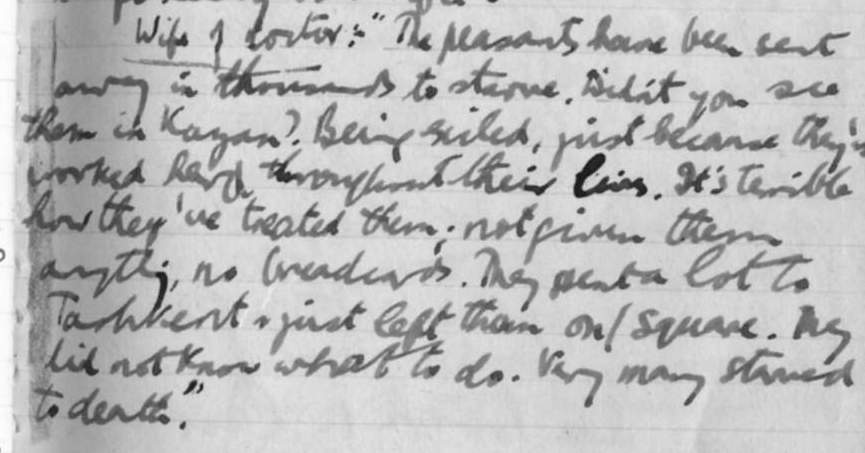 Wife of doctor:- "The peasants have been sent
away in thousands to starve. Didn't you see
them in Kazan? Being exiled, just because they've
worked hard throughout their lives. It's terrible
how they've treated them; not given them
anything, no breadcards. They sent a lot to
Tashkent & just left them on / square. They
did not know what to do. Very many starved
to death."